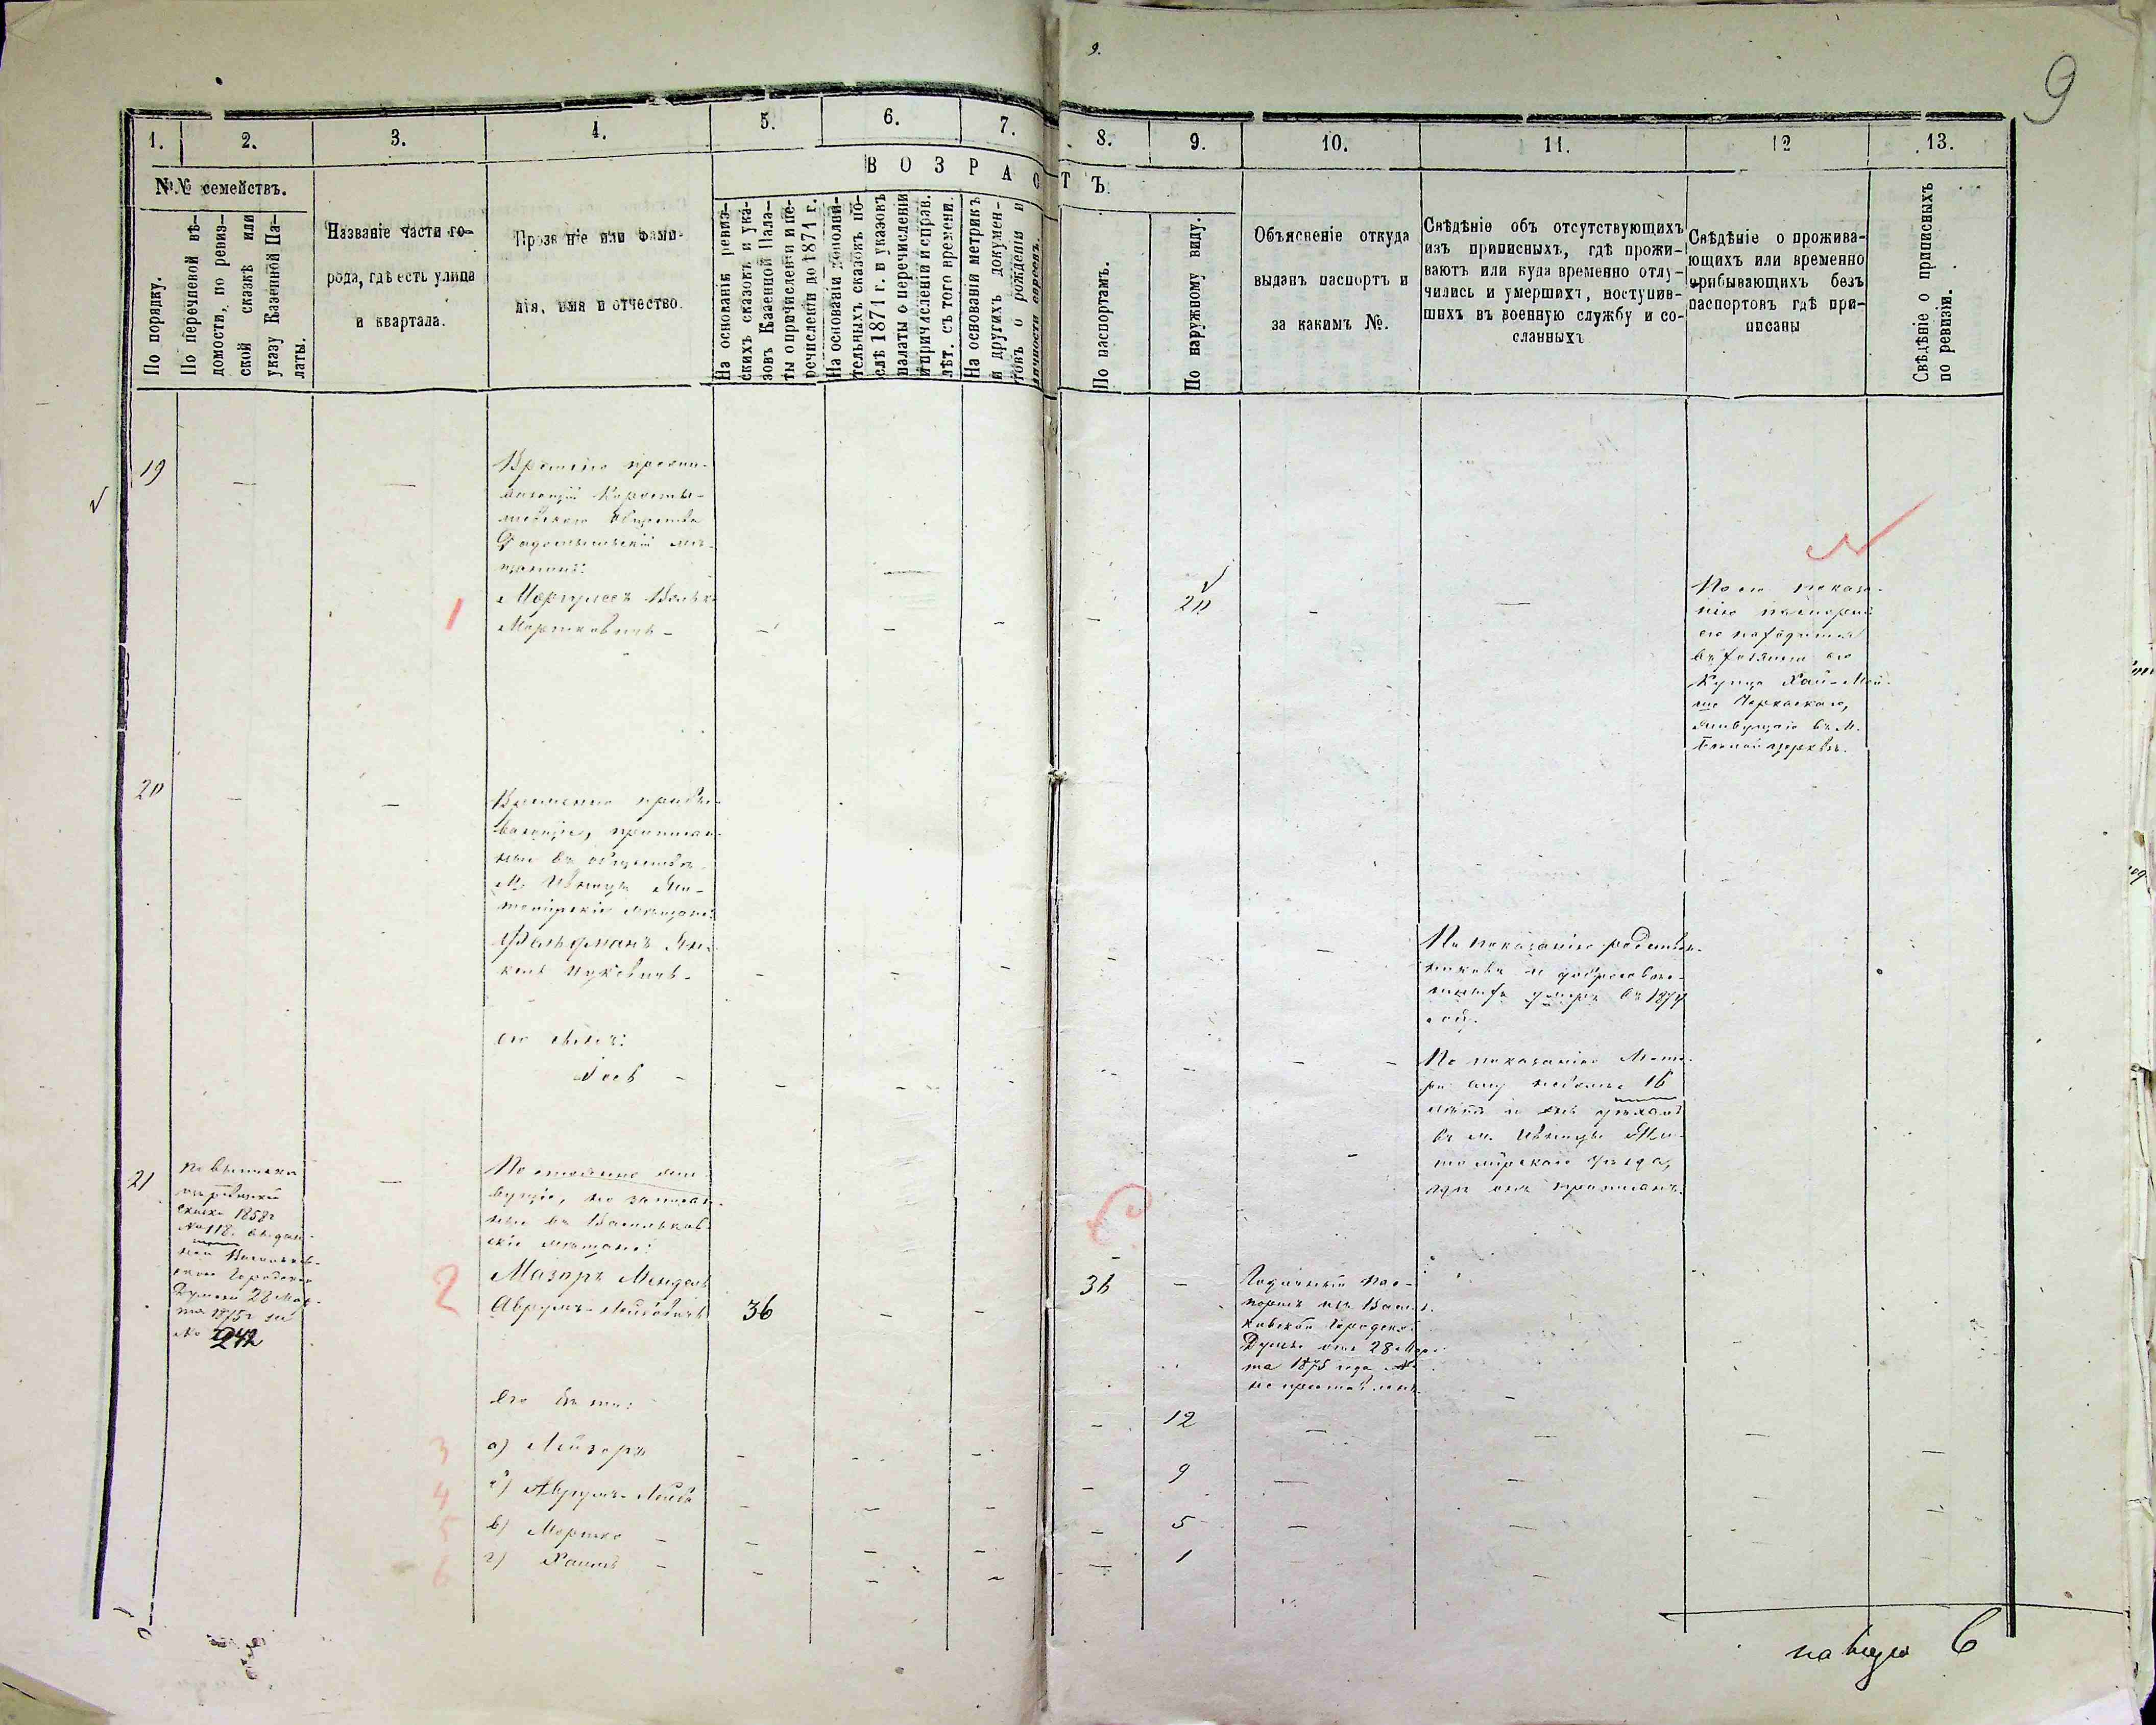 9.
9
1.
2.
3.
4.
5.
6.
7.
8.
9.
10.
11.
12
13.
№№ семействъ.
ВОЗРАСТЪ
По порядку.
По перечневой вѣ-
домости, по ревиз-
ской сказкѣ или
указу Казенной Па-
латы.
Названіе части го-
рода, гдѣ есть улица
и квартала.
Прозв ніе или фами-
лія, имя и отчество.
На основаніи ревиз-
скихъ сказокъ и ука-
зовъ Казенной Пала-
ты о причисленіи и пе-
речисленіи до 1871 г.
На основаніи дополни-
тельныхъ сказокъ по-
слѣ 1871 г. и указовъ
палаты о перечисленіи
и причисленіи и справ.
лѣт. съ того времени.
На основаніи метрикъ
и другихъ докумен-
товъ о рожденіи и
личности евреевъ.
По паспортамъ.
По наружному виду.
Объясненіе откуда
выданъ паспортъ и
за какимъ №.
Свѣдѣніе объ отсутствующихъ
изъ приписныхъ, гдѣ прожи-
ваютъ или куда временно отлу-
чились и умершихъ, поступив-
шихъ въ военную службу и со-
сланныхъ
Свѣдѣніе о прожива-
ющихъ или временно
прибывающихъ безъ
паспортовъ гдѣ при-
писаны
Свѣдѣніе о приписныхъ
по ревизіи.
19
Временно прожи-
вающій Коросты-
шевскаго Общества
Радомысльскій мѣ-
щанинъ:
1
Моргулесъ Волько
Мортковичъ -
20
По его показа-
нію паспортъ
его находится
въ хозяина его
Купца Хаи-Мой-
ше Черкаскаго,
живущаго въ М.
Бѣлой церквѣ.
20
Временно пребы-
вающіе, приписан-
ные въ обществѣ
М. Ивницы Жи-
томірскіе мѣщане:
Фельдманъ Ян-
кель Ицковичъ -
По показанію родствен-
никовъ и
умеръ въ 1874
году.
его сынъ:
Іосъ -
По показанію Мате-
ри ему неболѣе 16
лѣтъ и онъ уѣхалъ
въ м. Ивницы Жи-
томірскаго уѣзда,
гдѣ онъ приписанъ.
21
по выписки
изъ ревизской
сказки 1858 г
№ 118. выдан-
ной Васильков-
скою Городскою
Думою 28 Мар-
та 1875 г за
№ 242
Постоянно жи-
вущіе, но записан-
ные въ Васильков-
скіе мѣщане:
2
Мазоръ Мендель
Аврумъ-Лейбовичъ
36
36
Годичный пас-
портъ изъ Василь-
ковской Городской
Думы отъ 28 Мар-
та 1875 года №
не проставленъ.
его дѣти:
3
а) Лейзоръ
12
4
б) Аврумъ-Лейба
9
5
в) Мортко -
5
6
г) Хаимъ -
1
на виду 6